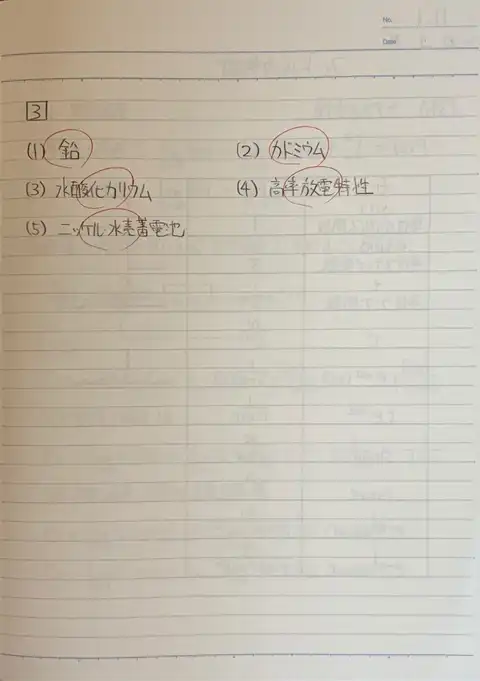 No.
Date
3
(1) 鉛 (2) カドミウム
(3) 水酸化カリウム (4) 高率放電特性
(5) ニッケル水素蓄電池